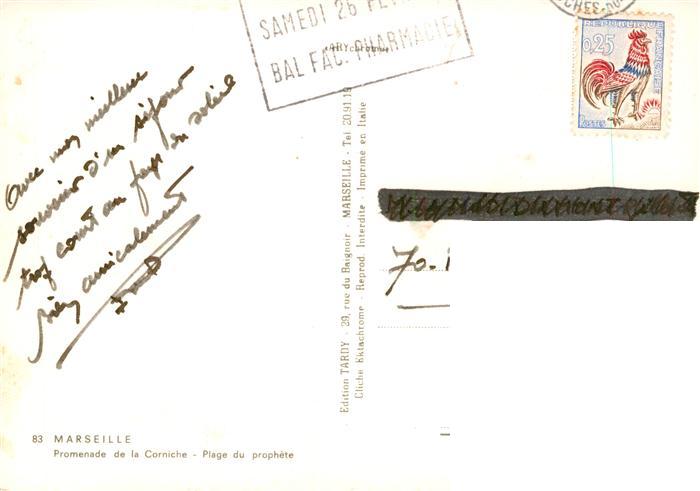 SAMEDI 26 FEV
BAL FAC. PHARMACIE
RÉPUBLIQUE FRANÇAISE
0,25
POSTES
Avec mon meilleur
souvenir d'un séjour
trop court au pays du soleil
bien amicalement
70-
Edition TARDY - 29, rue du Baignoir - MARSEILLE - Tel 20.91.19
Cliche Ektachrome - Reprod. Interdite - Imprime en Italie
83 MARSEILLE
Promenade de la Corniche - Plage du prophète